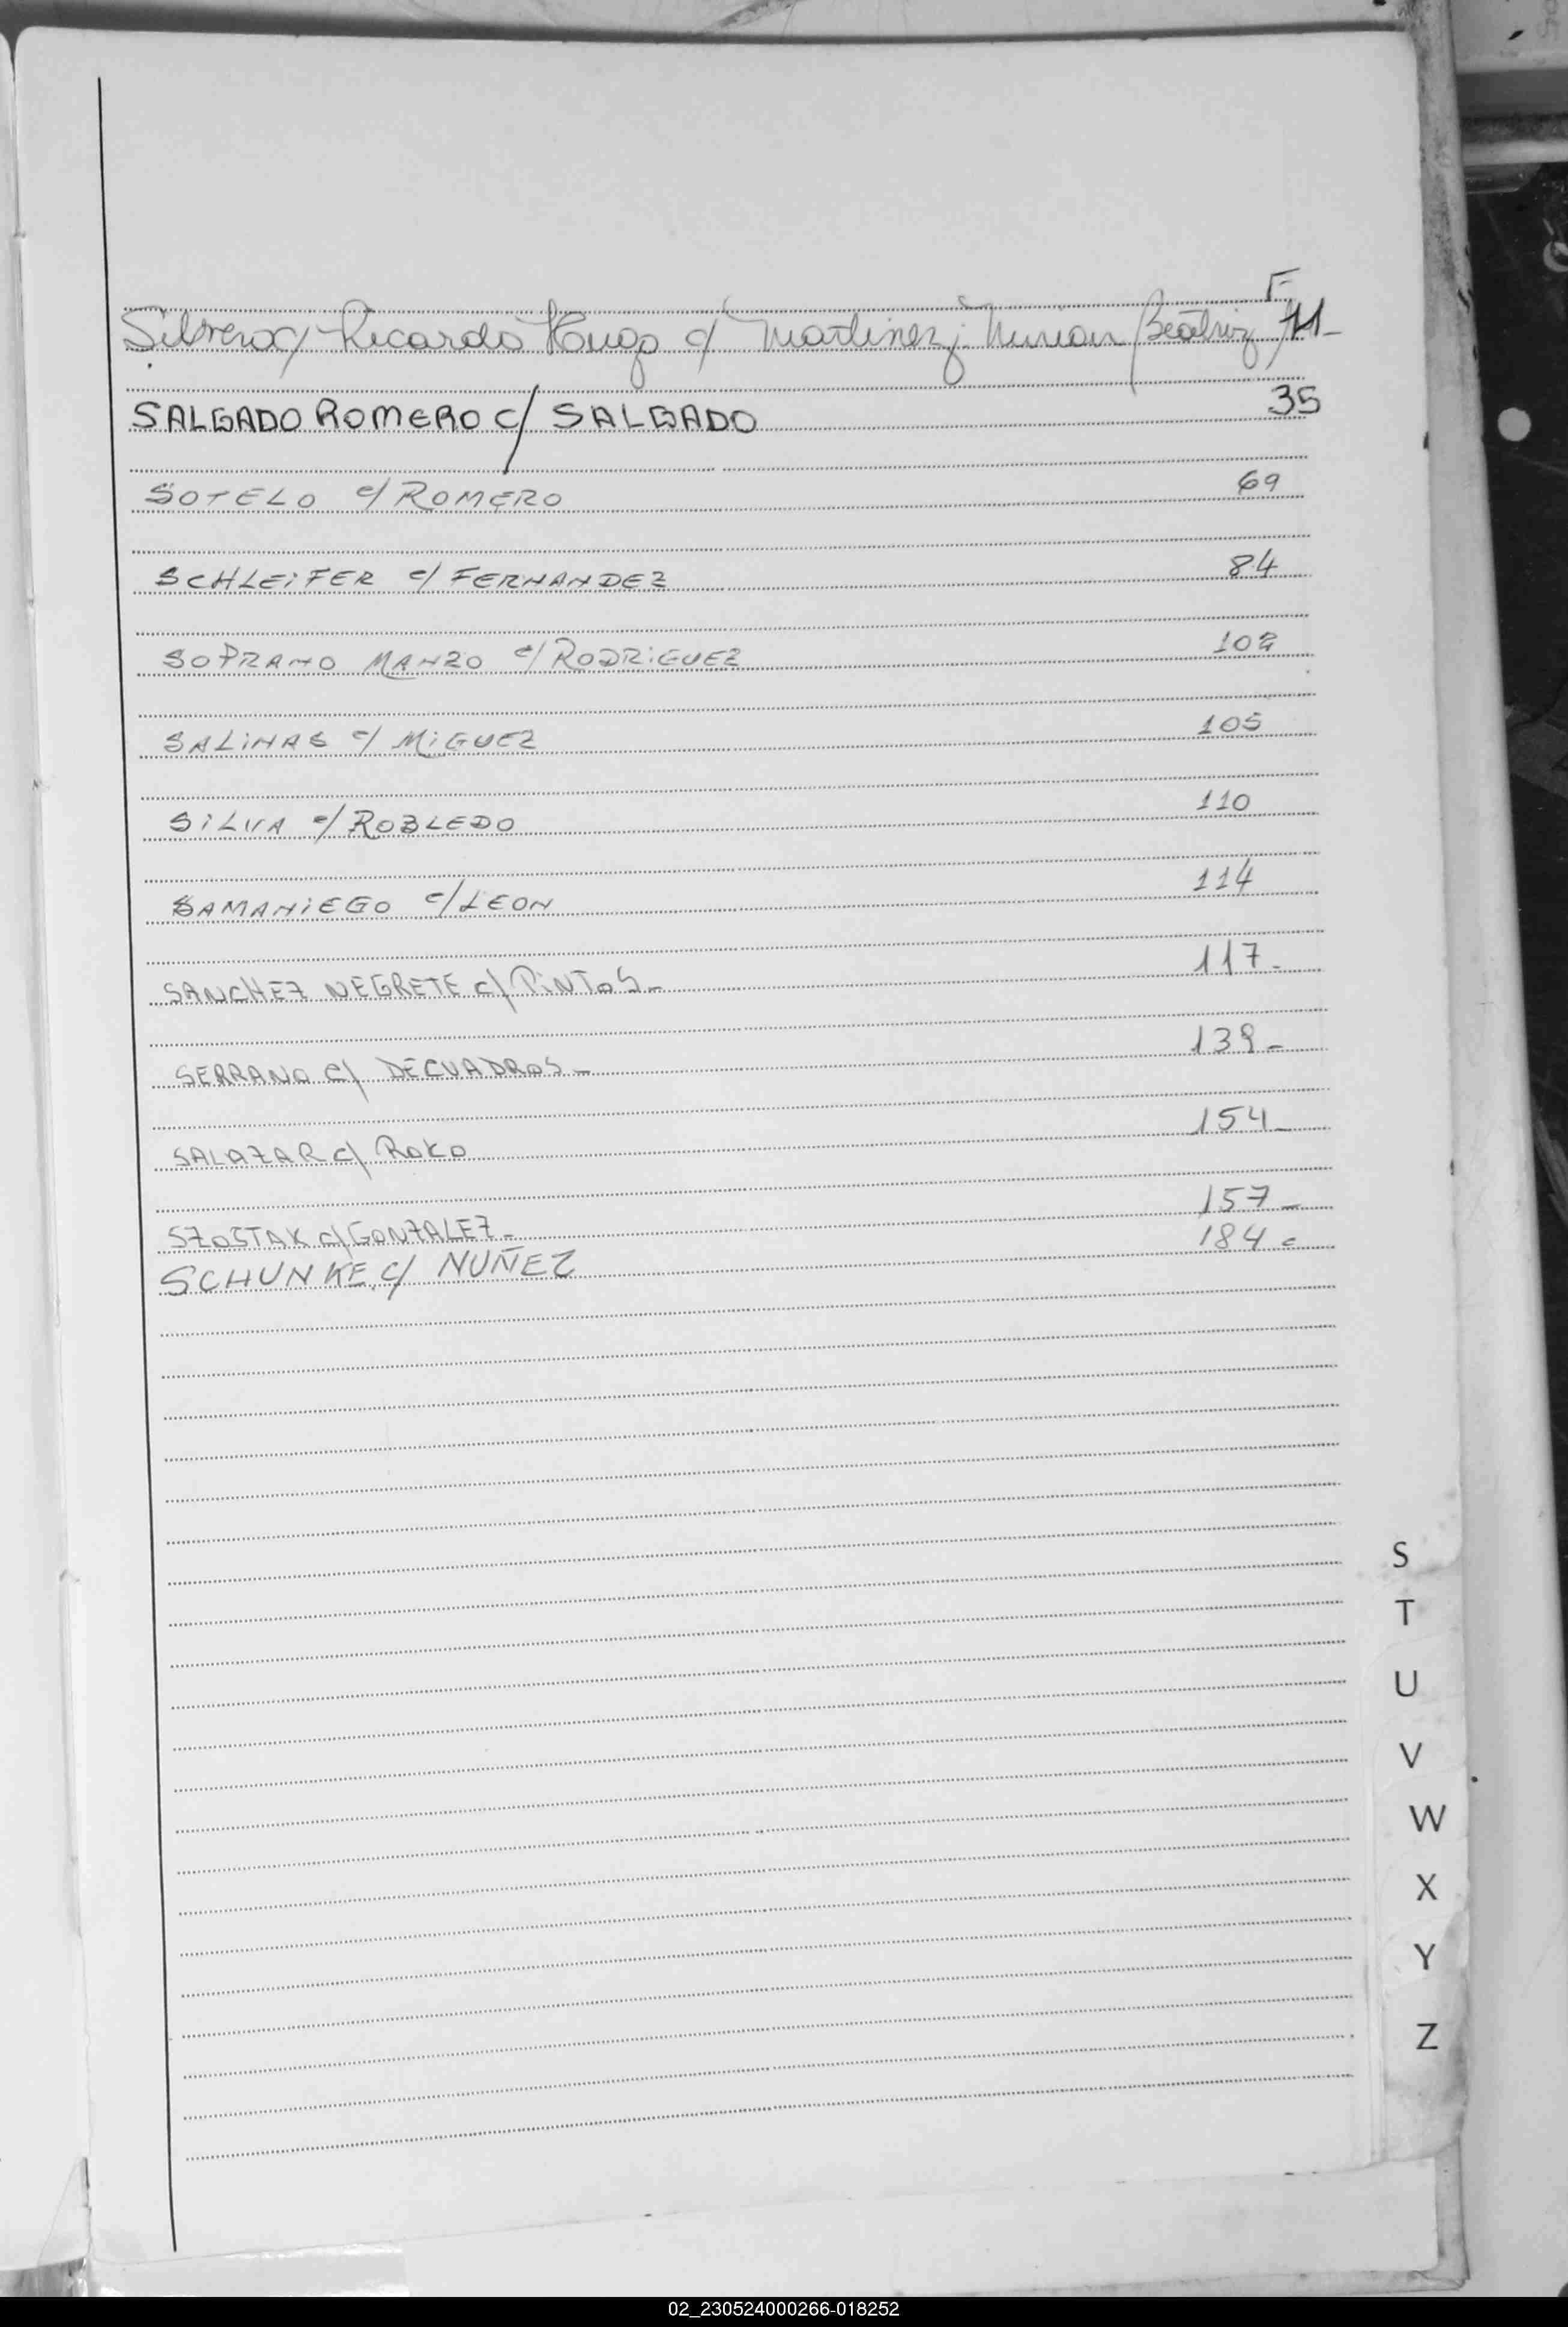 F
Silvera c/ Ricardo Hugo c/ Martinez Miriam Beatriz 11-
SALGADO ROMERO C/ SALGADO 35
SOTELO c/ ROMERO 69
SCHLEiFER c/ FERNANDEZ 84
SOPRANO MANZO c/ RODRiGUEZ 102
SALiNAS c/ MiGUEZ 105
SiLVA c/ ROBLEDO 110
SAMANiEGO c/ LEON 114
SANCHEZ NEGRETE c/ PiNTOS- 117-
SERRANO C/ DECUADROS- 139-
SALAZAR c/ ROKO 154-
SZOSTAK c/ GONZALEZ- 157-
SCHUNKE c/ NUÑEZ 184
S
T
U
V
W
X
Y
Z
02_230524000266-018252